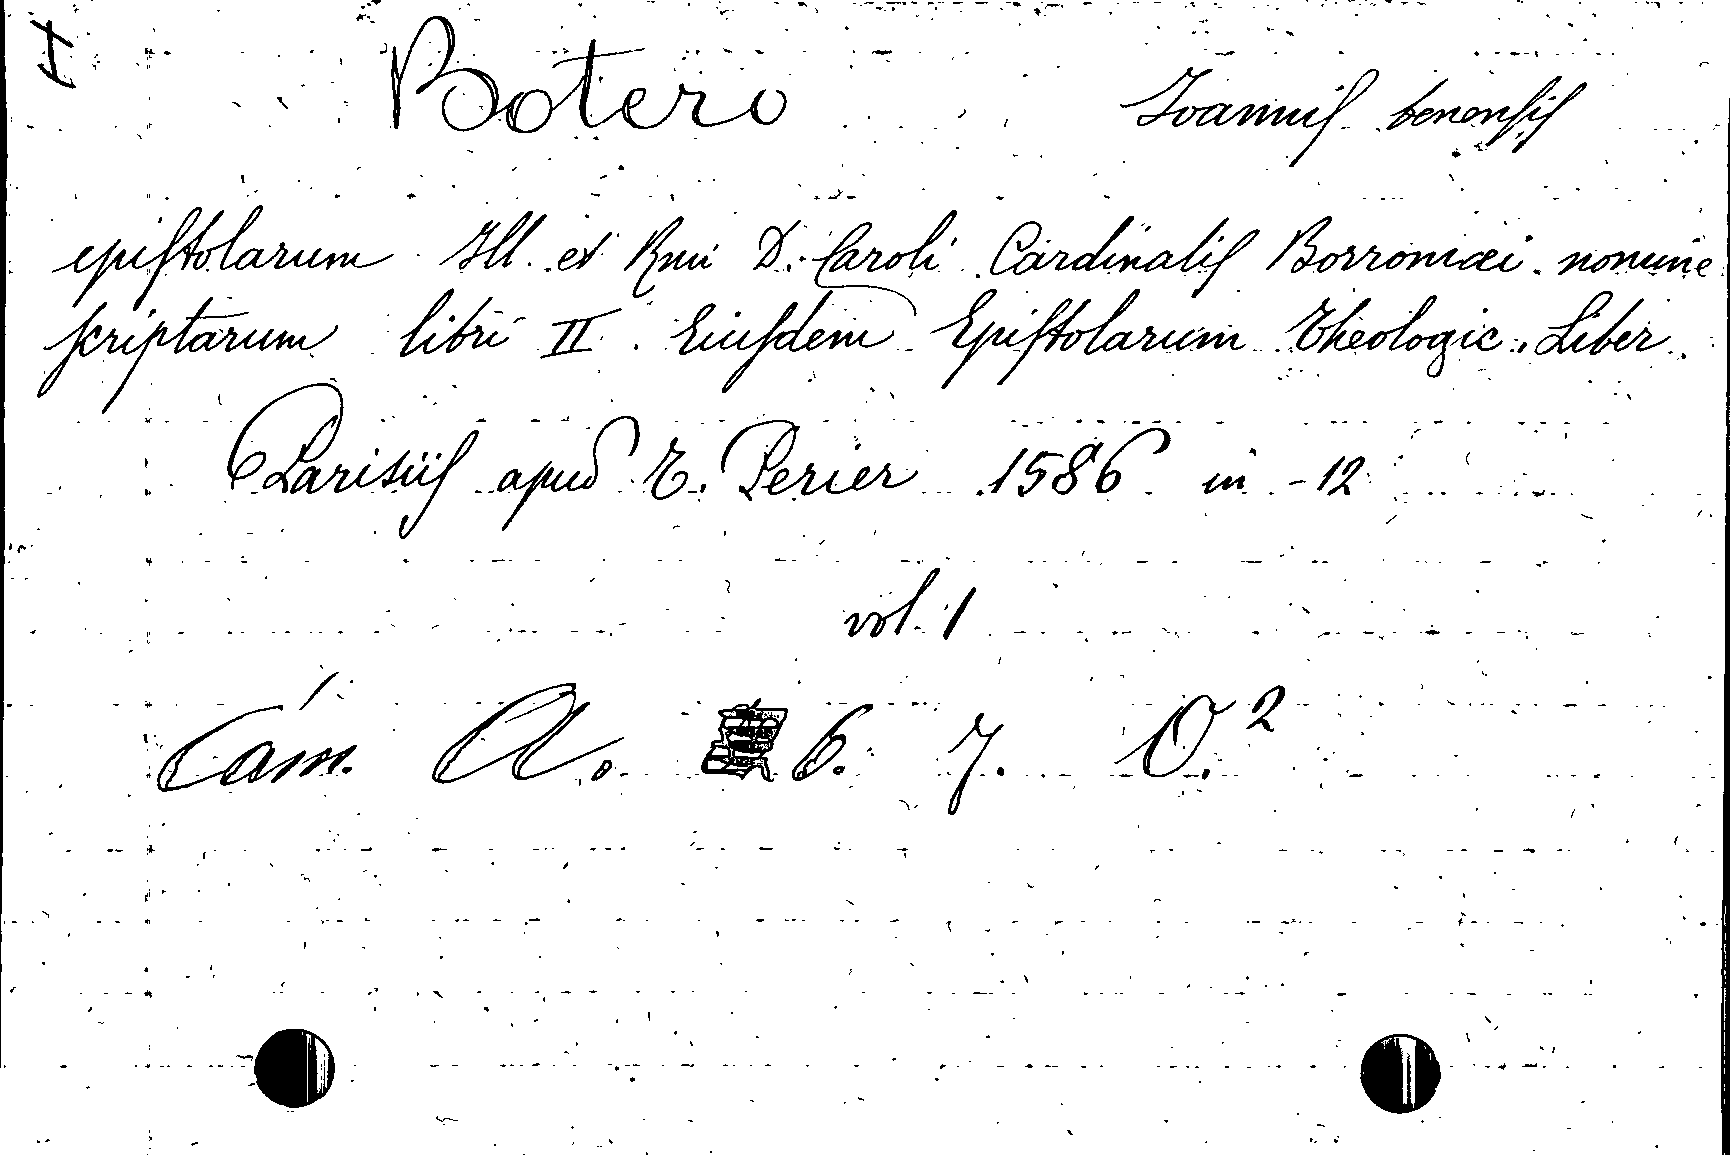 Botero Ioannis benensis
epistolarum Ill. et Rmi D. Caroli Cardinalis Borromæi nomine
scriptarum libri II. Eiusdem Epistolarum Theologic. Liber
Parisiis apud T. Perier 1586 in-12
vol. 1
Cám. A. 6. 7. O.²